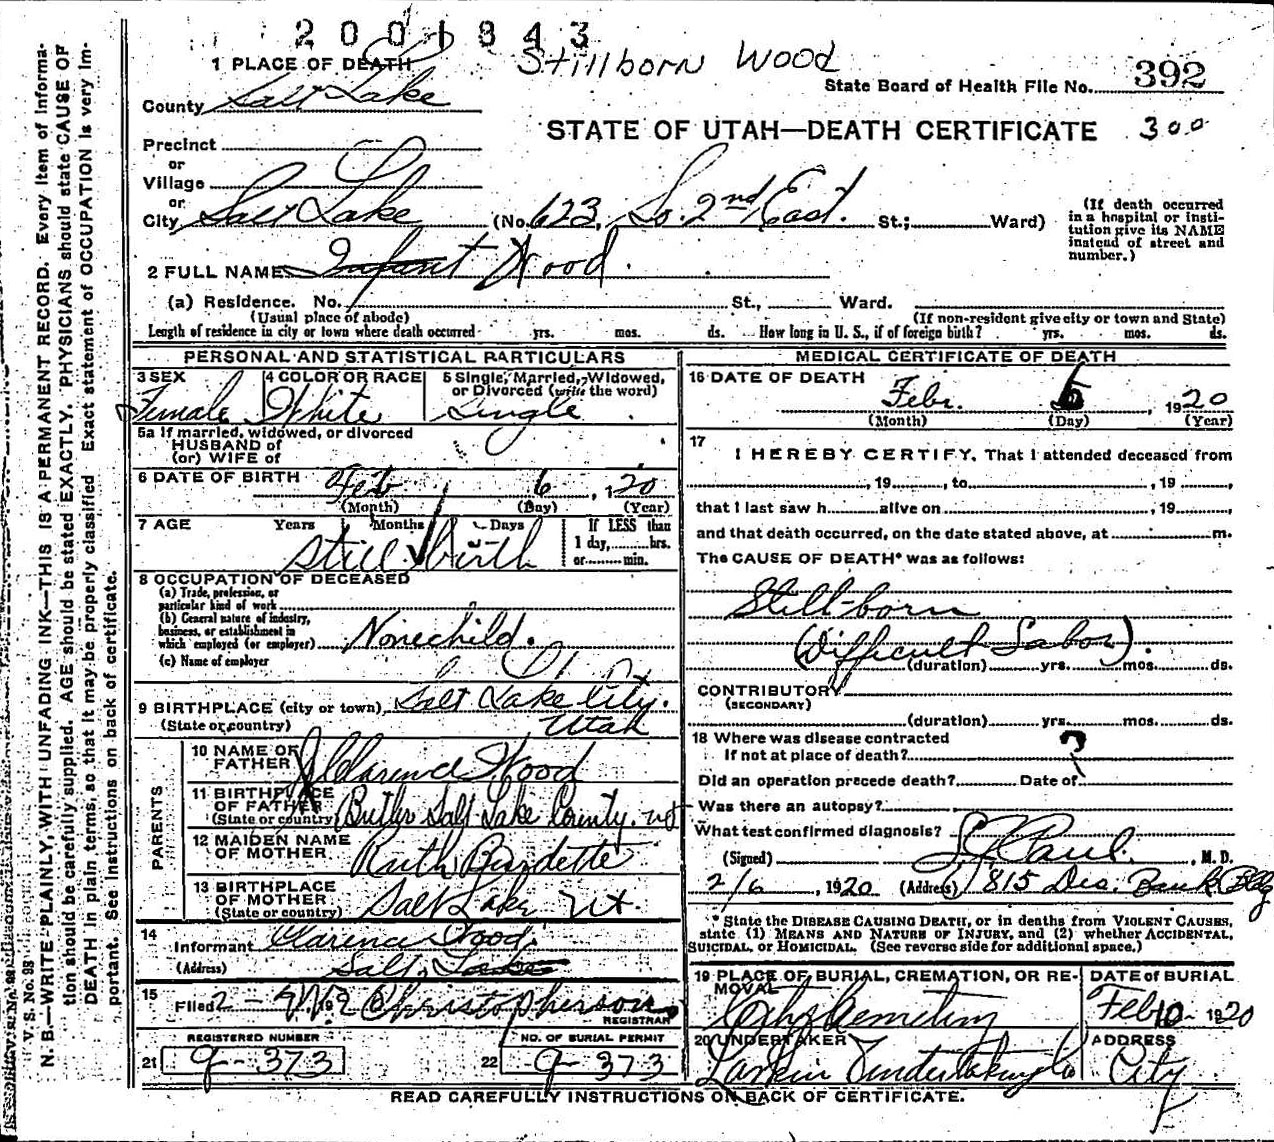 2001843
Stillborn Wood
1 PLACE OF DEATH
State Board of Health File No. 392
County Salt Lake
STATE OF UTAH—DEATH CERTIFICATE 300
Precinct
or
Village
or
City Salt Lake (No. 623, So. 2nd East. St.; Ward)
(If death occurred in a hospital or institution give its NAME instead of street and number.)
2 FULL NAME Infant Wood.
(a) Residence. No. St., Ward.
(Usual place of abode) (If non-resident give city or town and State)
Length of residence in city or town where death occurred yrs. mos. ds. How long in U. S., if of foreign birth? yrs. mos. ds.
PERSONAL AND STATISTICAL PARTICULARS
3 SEX 4 COLOR OR RACE 5 Single, Married, Widowed,
or Divorced (write the word)
Female White Single
5a If married, widowed, or divorced
HUSBAND of
(or) WIFE of
6 DATE OF BIRTH Feb 6, 1920
(Month) (Day) (Year)
7 AGE Years Months Days If LESS than
1 day, hrs.
or min.
Still birth
8 OCCUPATION OF DECEASED
(a) Trade, profession, or
particular kind of work
(b) General nature of industry,
business, or establishment in
which employed (or employer) None child.
(c) Name of employer
9 BIRTHPLACE (city or town) Salt Lake City.
(State or country) Utah
PARENTS
10 NAME OF
FATHER Clarence Wood
11 BIRTHPLACE
OF FATHER
(State or country) Butler Salt Lake County. Ut
12 MAIDEN NAME
OF MOTHER Ruth Burdette
13 BIRTHPLACE
OF MOTHER
(State or country) Salt Lake Ut.
14
Informant Clarence Wood.
(Address) Salt Lake
15 Filed 2- Christopherson
REGISTRAR
REGISTERED NUMBER NO. OF BURIAL PERMIT
21 9-373 22 9-373
MEDICAL CERTIFICATE OF DEATH
16 DATE OF DEATH Febr. 6, 1920
(Month) (Day) (Year)
17
I HEREBY CERTIFY, That I attended deceased from
, 19 , to , 19 ,
that I last saw h alive on , 19 ,
and that death occurred, on the date stated above, at m.
The CAUSE OF DEATH* was as follows:
Still-born
(Difficult Labor).
(duration) yrs. mos. ds.
CONTRIBUTORY
(SECONDARY)
(duration) yrs. mos. ds.
18 Where was disease contracted
If not at place of death? ?
Did an operation precede death? Date of
Was there an autopsy?
What test confirmed diagnosis?
(Signed) Paul. , M. D.
2/6, 1920 (Address) 815 Des. Bank Bldg
* State the DISEASE CAUSING DEATH, or in deaths from VIOLENT CAUSES,
state (1) MEANS AND NATURE OF INJURY, and (2) whether ACCIDENTAL,
SUICIDAL, or HOMICIDAL. (See reverse side for additional space.)
19 PLACE OF BURIAL, CREMATION, OR REMOVAL DATE of BURIAL
City Cemetery Feb 10- 1920
20 UNDERTAKER ADDRESS
Larkin Undertaking Co City
READ CAREFULLY INSTRUCTIONS ON BACK OF CERTIFICATE.
V. S. No. 98
N. B.—WRITE PLAINLY, WITH UNFADING INK—THIS IS A PERMANENT RECORD. Every item of information should be carefully supplied. AGE should be stated EXACTLY. PHYSICIANS should state CAUSE OF DEATH in plain terms, so that it may be properly classified Exact statement of OCCUPATION is very important. See instructions on back of certificate.